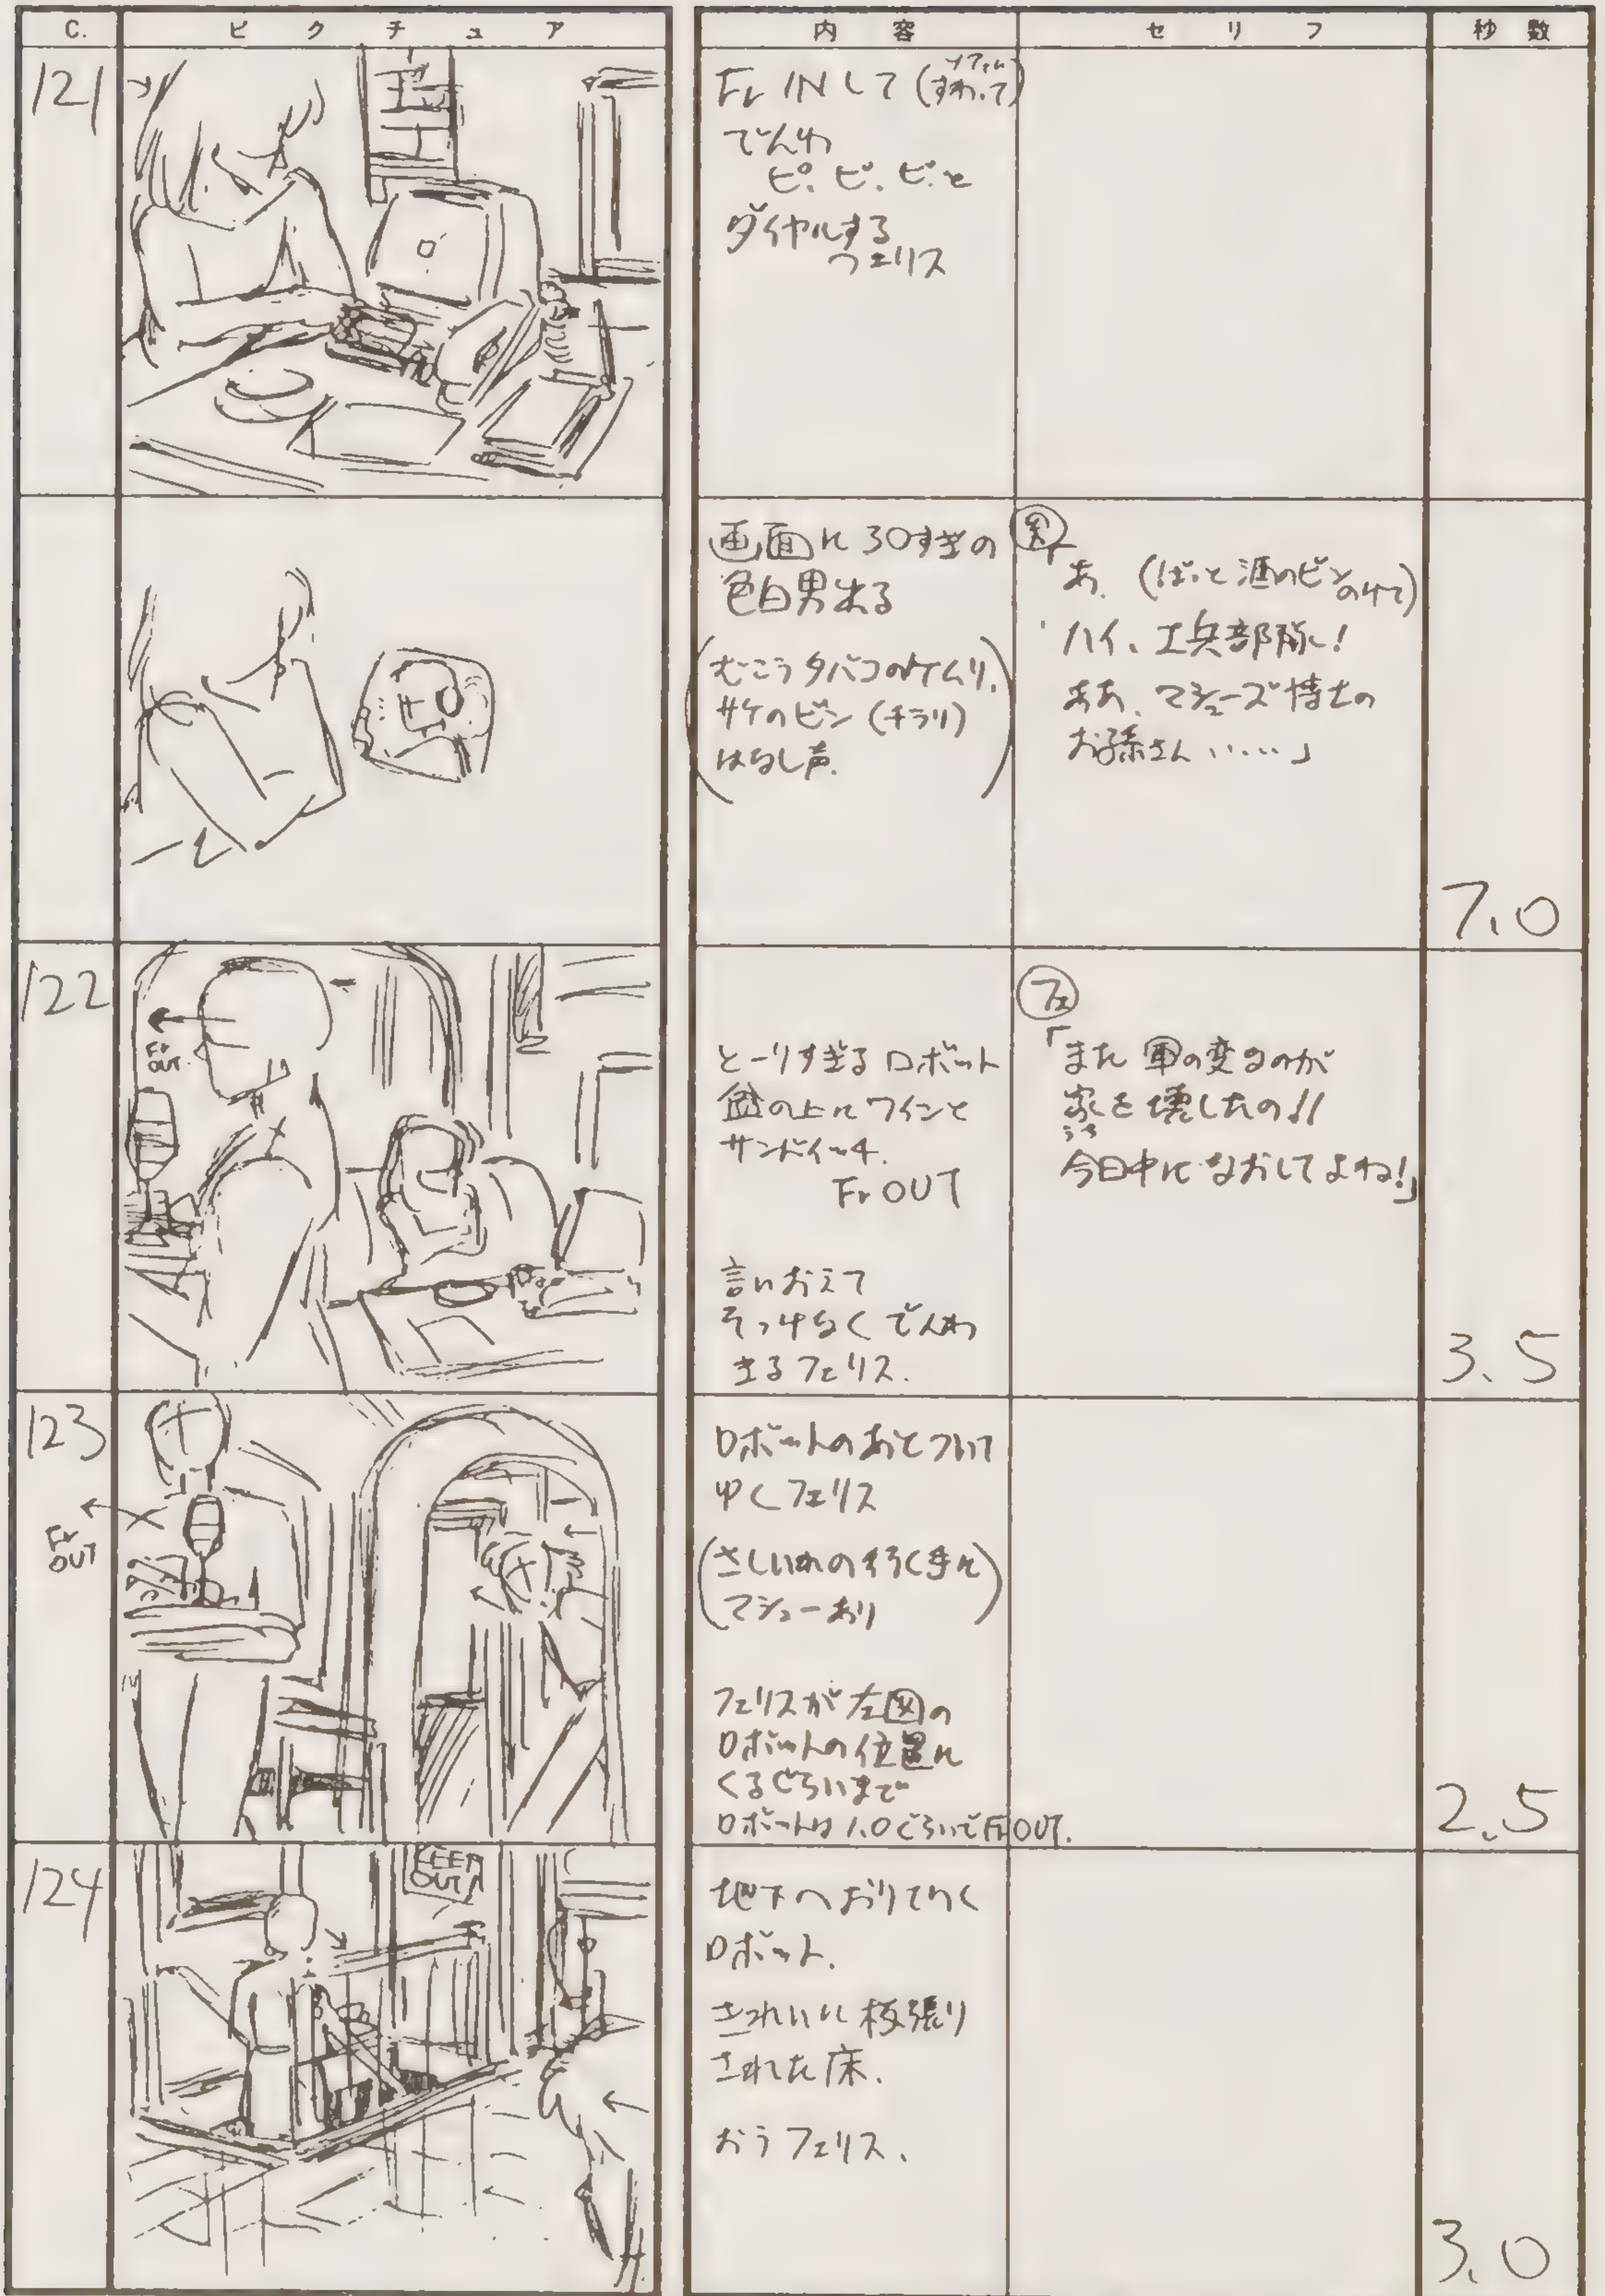 C. ピクチュア 内容 セリフ 秒数
121
Fr INして(すわって)
でんわ
ピ、ピ、ピと
ダイヤルする
フェリス
画面に30すぎの
色白男出る
(むこうタバコのケムリ、
サケのビン(チラリ)
はなし声.)
男
「あ、(ぱっと酒のビンのけて)
ハイ、工兵部隊!
ああ、マシューズ博士の
お孫さん……」
7.0
122
Fr
OUT
とーりすぎるロボット
盆の上にワインと
サンドイッチ.
Fr OUT
言いおえて
そっけなくでんわ
きるフェリス.
フェ
「また軍の変なのが
家を壊したの!!
うち
今日中になおしてよね!」
3.5
123
Fr
OUT
ロボットのあとついて
ゆくフェリス
(さしいれの行く手に
マシューおり)
フェリスが左図の
ロボットの位置に
くるぐらいまで
ロボットは1.0ぐらいでFr OUT.
2.5
124
KEEP
OUT
地下へおりてゆく
ロボット.
きれいに板張り
された床.
おうフェリス.
3.0